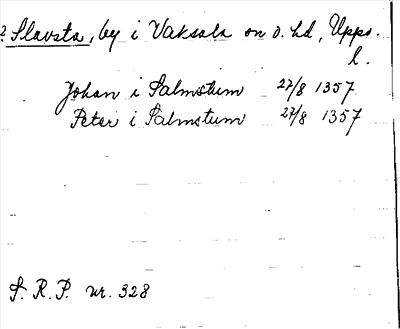 ? Slavsta, by i Vaksala sn o. hd, Upps.
l.
Johan i Salmstum 27/8 1357
Peter i Salmstum 27/8 1357
S. R. P. nr. 328